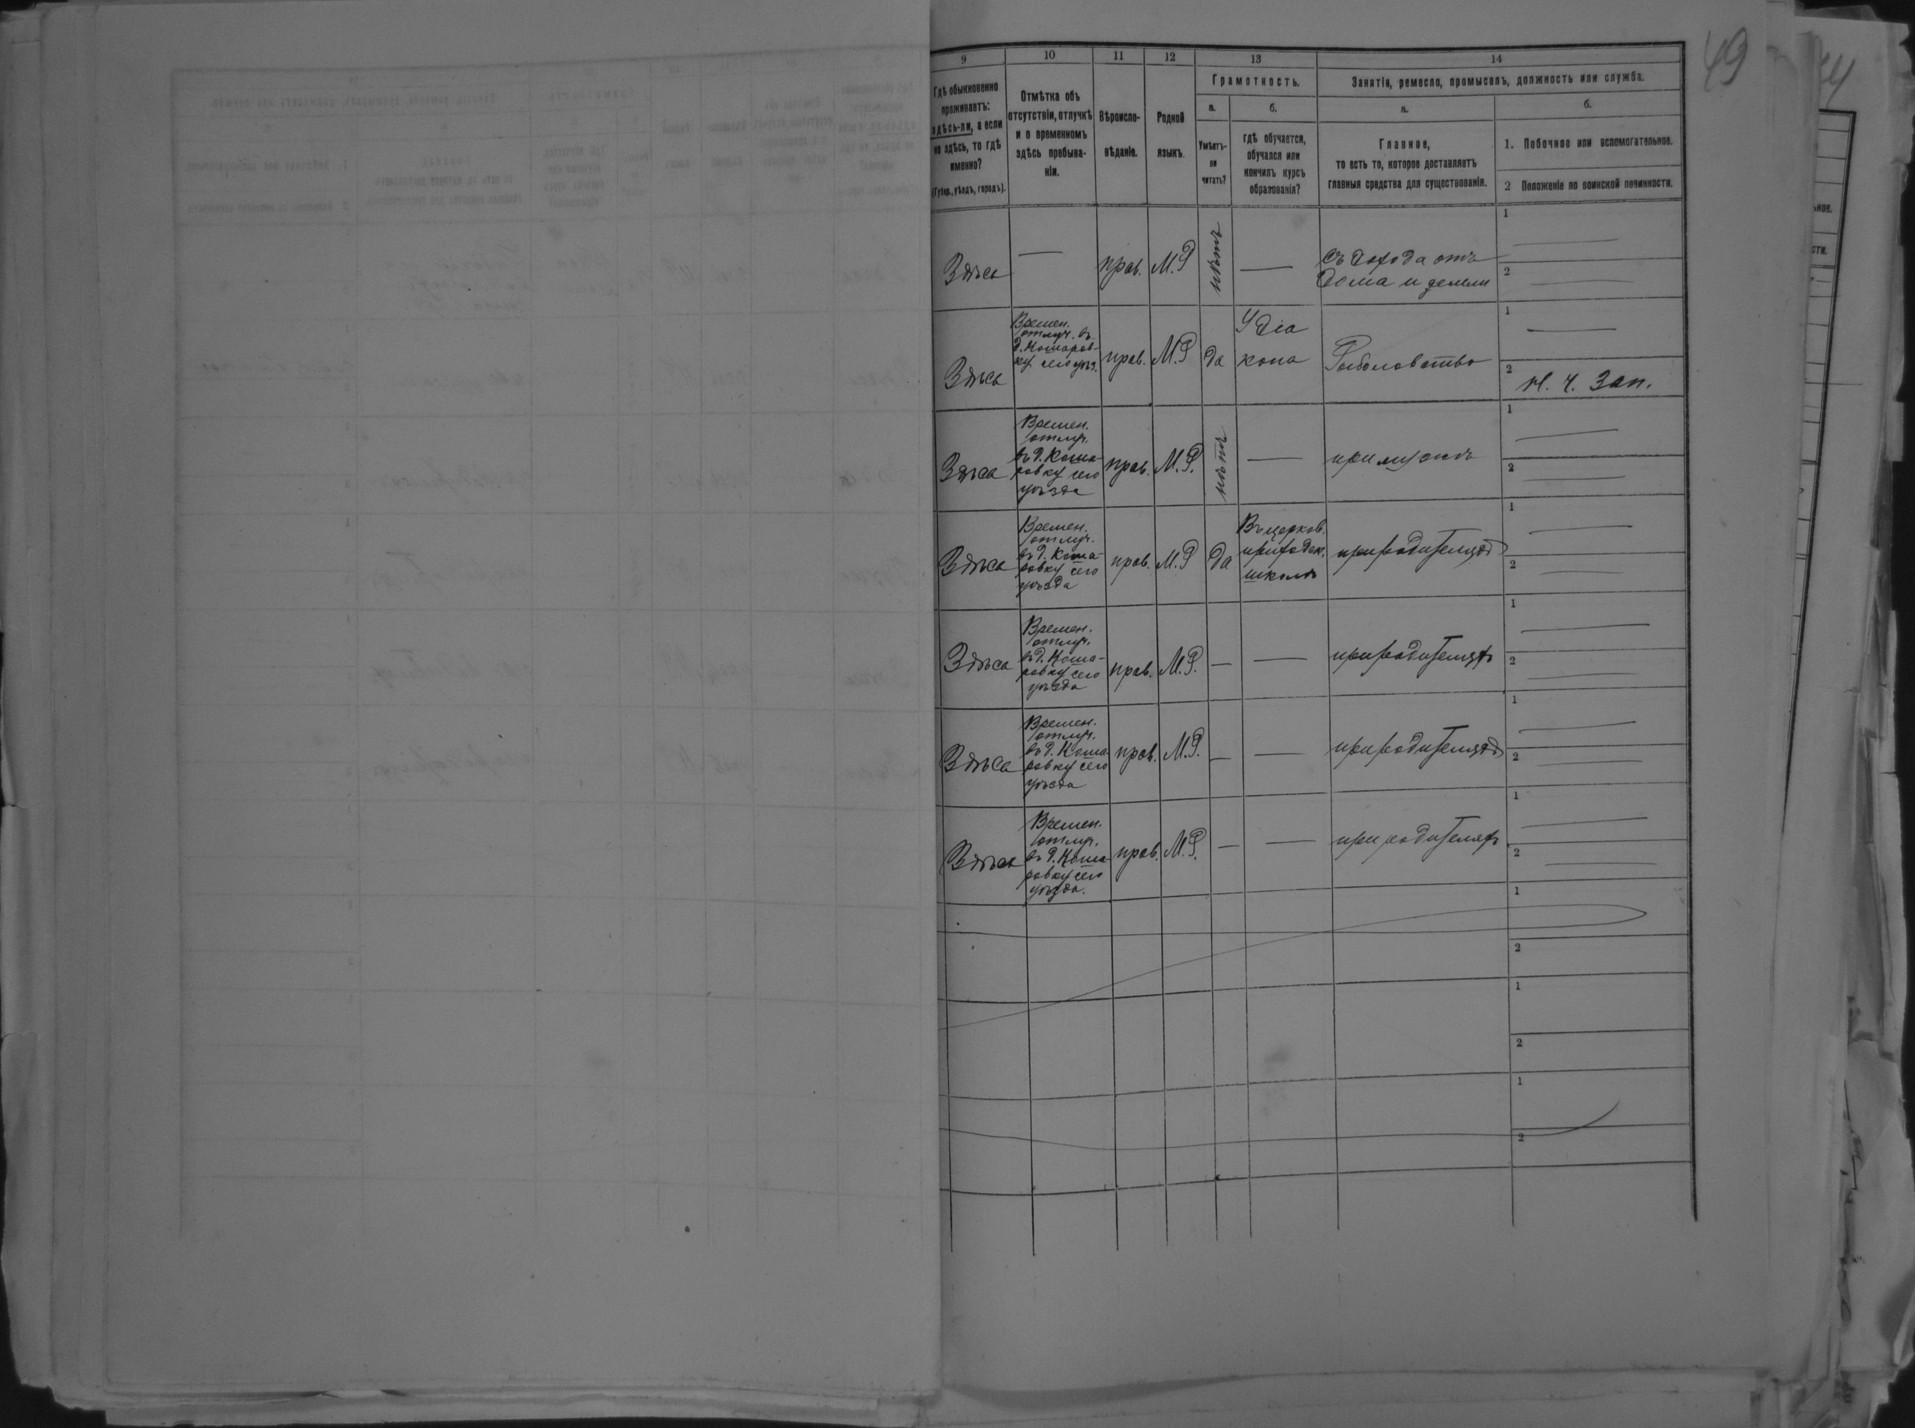 49
9 10 11 12 13 14
Гдѣ обыкновенно проживаетъ: здѣсь-ли, а если не здѣсь, то гдѣ именно? (Губер., уѣздъ, городъ).
Отмѣтка объ отсутствіи, отлучкѣ и о временномъ здѣсь пребываніи.
Вѣроисповѣданіе.
Родной языкъ.
Грамотность.
а. б.
Умѣетъ-ли читать?
гдѣ обучается, обучался или кончилъ курсъ образованія?
Занятія, ремесло, промыселъ, должность или служба.
а. б.
Главное,
то есть то, которое доставляетъ
главныя средства для существованія.
1. Побочное или вспомогательное.
2 Положеніе по воинской повинности.
Здѣсь — прав. М.Р нѣтъ — Съ дохода отъ
дома и земли
1 —
2 —
Здѣсь
Времен.
отлуч. въ
д. Комаров-
ку сего уѣз.
прав. М.Р да
У діа
кона
Рыболовство
1 —
2 Н. Ч. Зап.
Здѣсь
Времен.
отлуч.
въ д. Кома-
ровку сего
уѣзда
прав. М.Р. нѣтъ — при мужѣ
1 —
2 —
Здѣсь
Времен.
отлуч.
въ д. Кома-
ровку сего
уѣзда
прав. М.Р да
Въ церков.
приходск.
школѣ
при родителяхъ
1 —
2 —
Здѣсь
Времен.
отлуч.
въ д. Кома-
ровку сего
уѣзда
прав. М.Р. — — при родителяхъ
1 —
2 —
Здѣсь
Времен.
отлуч.
въ д. Кома
ровку сего
уѣзда
прав. М.Р. — — при родителяхъ
1 —
2 —
Здѣсь
Времен.
отлуч.
въ д. Кома-
ровку сего
уѣзда.
прав. М.Р. — — при родителяхъ
1 —
2 —
1
2
1
2
1
2